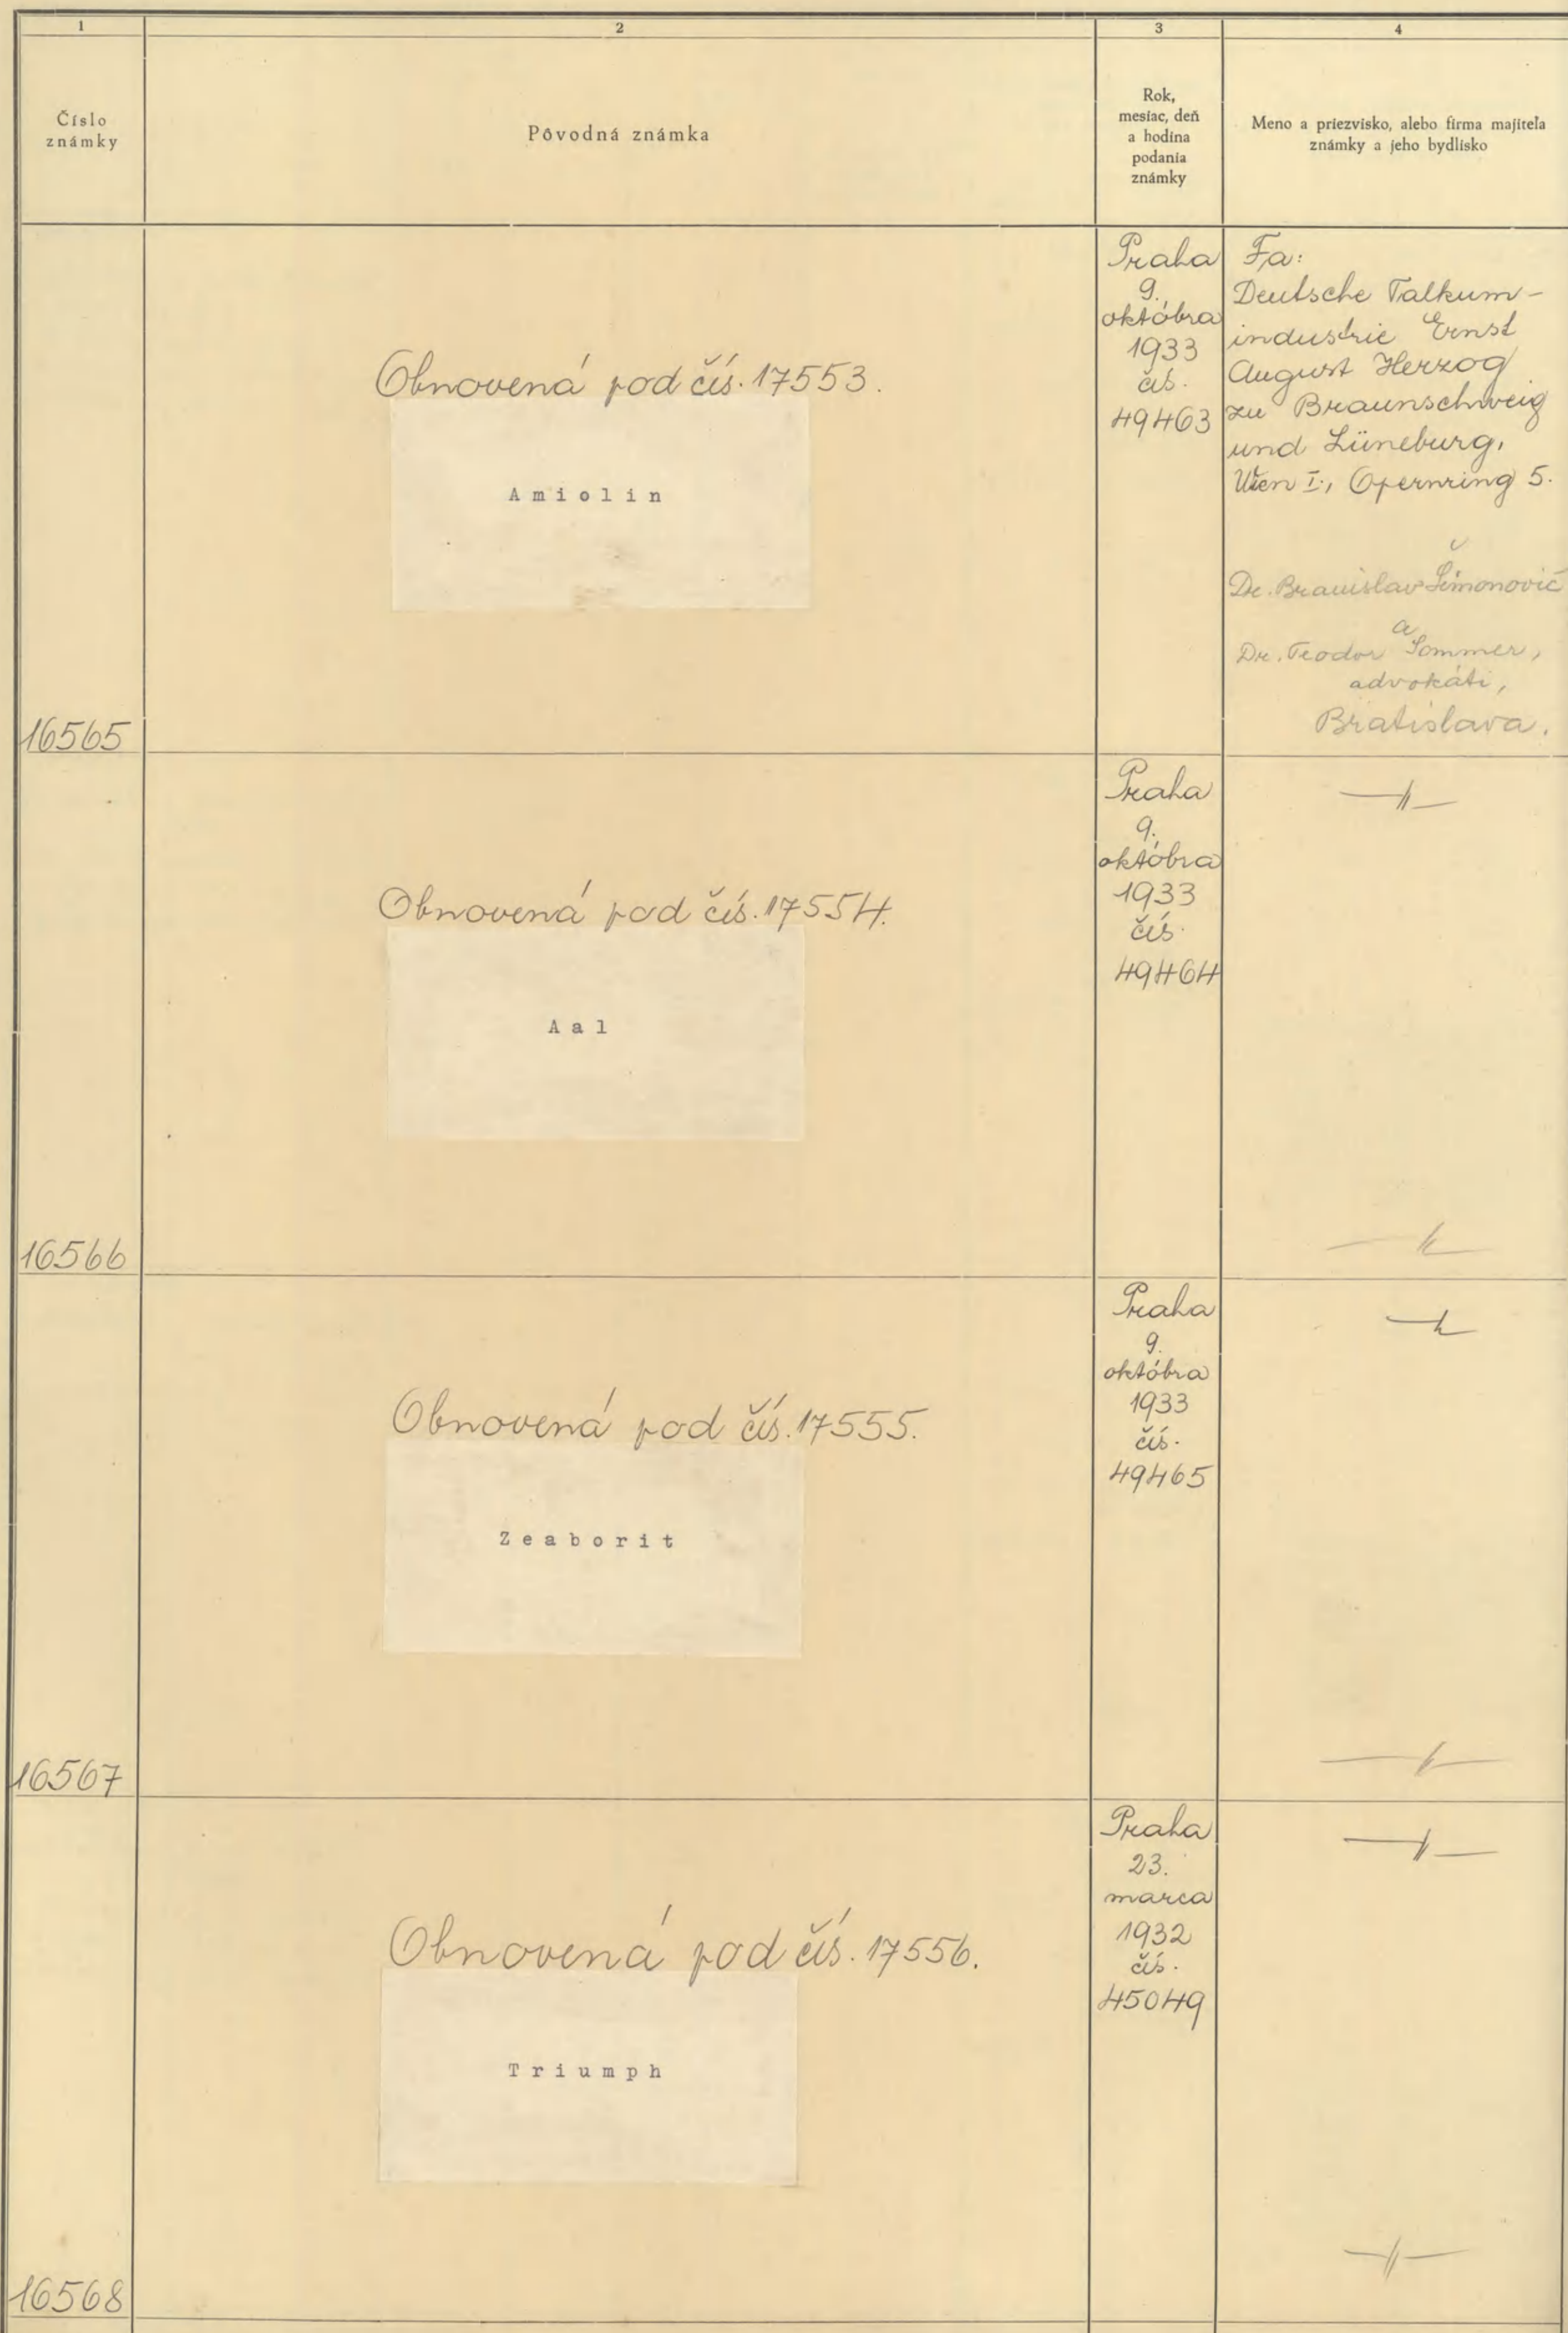 1
2
3
4
Číslo
známky
Pôvodná známka
Rok,
mesiac, deň
a hodina
podania
známky
Meno a priezvisko, alebo firma majiteľa
známky a jeho bydlisko
16565
Obnovená pod čís. 17553.
Amiolin
Praha
9.
októbra
1933
čís.
49463
Fa:
Deutsche Talkum-
industrie Ernst
August Herzog
zu Braunschweig
und Lüneburg,
Wien I., Opernring 5.
Dr. Branislav Šimonovič
a
Dr. Teodor Sommer,
advokáti,
Bratislava.
16566
Obnovená pod čís. 17554.
Aal
Praha
9.
októbra
1933
čís.
49464
—〃—
—〃—
16567
Obnovená pod čís. 17555.
Zeaborit
Praha
9.
októbra
1933
čís.
49465
—〃—
—〃—
16568
Obnovená pod čís. 17556.
Triumph
Praha
23.
marca
1932
čís.
45049
—〃—
—〃—